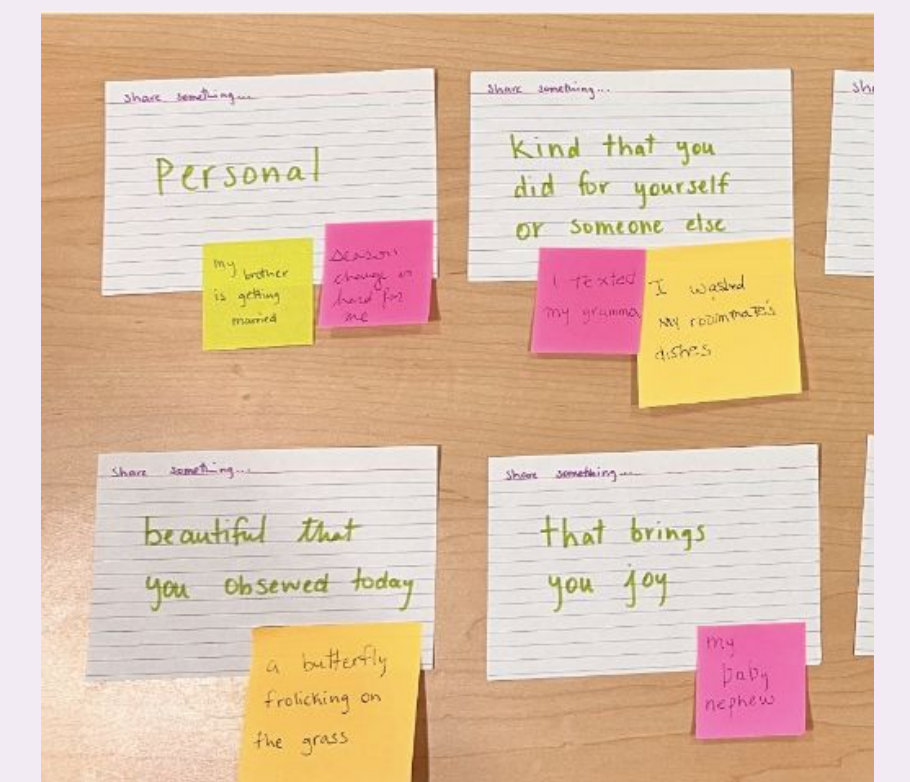 Share something...
Personal
my brother
is getting
married
Season
change is
hard for
me
Share something...
kind that you
did for yourself
or someone else
I texted
my gramma
I washed
my roommate's
dishes
Sh
Share something...
beautiful that
you observed today
a butterfly
frolicking on
the grass
Share something...
that brings
you joy
my
baby
nephew